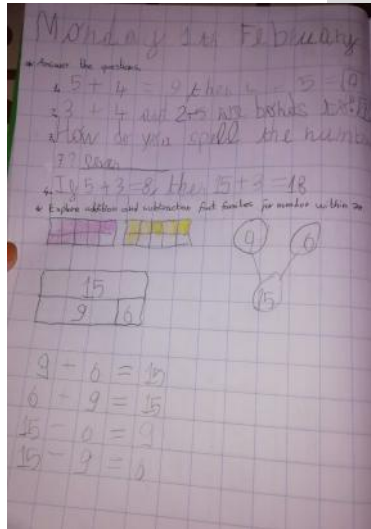 Monday 1st February
Answer the questions.
1. 5 + 4 = 9 then 5 = 9
2. 3 + 4 and 2+5 are bonds
3. How do you spell the number
7? Seven
4. If 5+3=8, then 15+3=18
Explore addition and subtraction fact families for number within 20
9 6
15
15
9 6
9 - 6 = 15
6 - 9 = 15
15 - 6 = 9
15 - 9 = 6